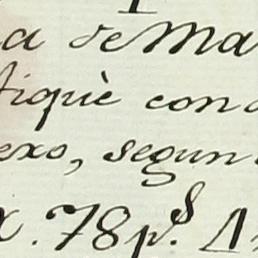 a de Ma
tiquè con
exo, segun
x. 78 p.s A